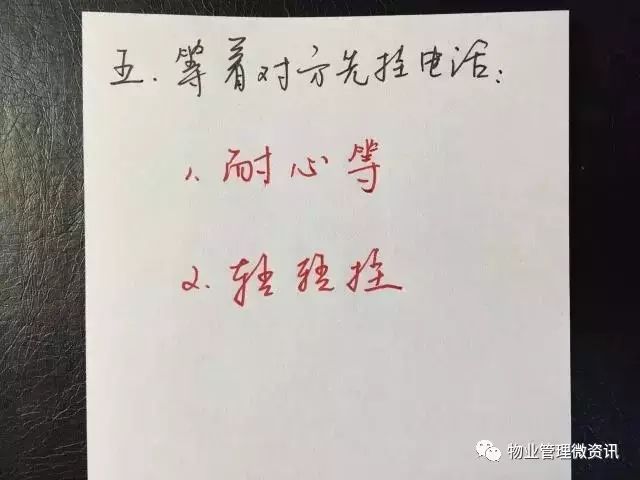 五.等着对方先挂电话:
1.耐心等
2.轻轻挂
物业管理微资讯